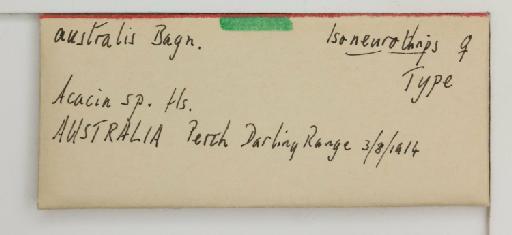 australis Bagn. Isoneurothrips ♀
Type
Acacia sp. fls.
AUSTRALIA Perth Darling Range 3/8/1914